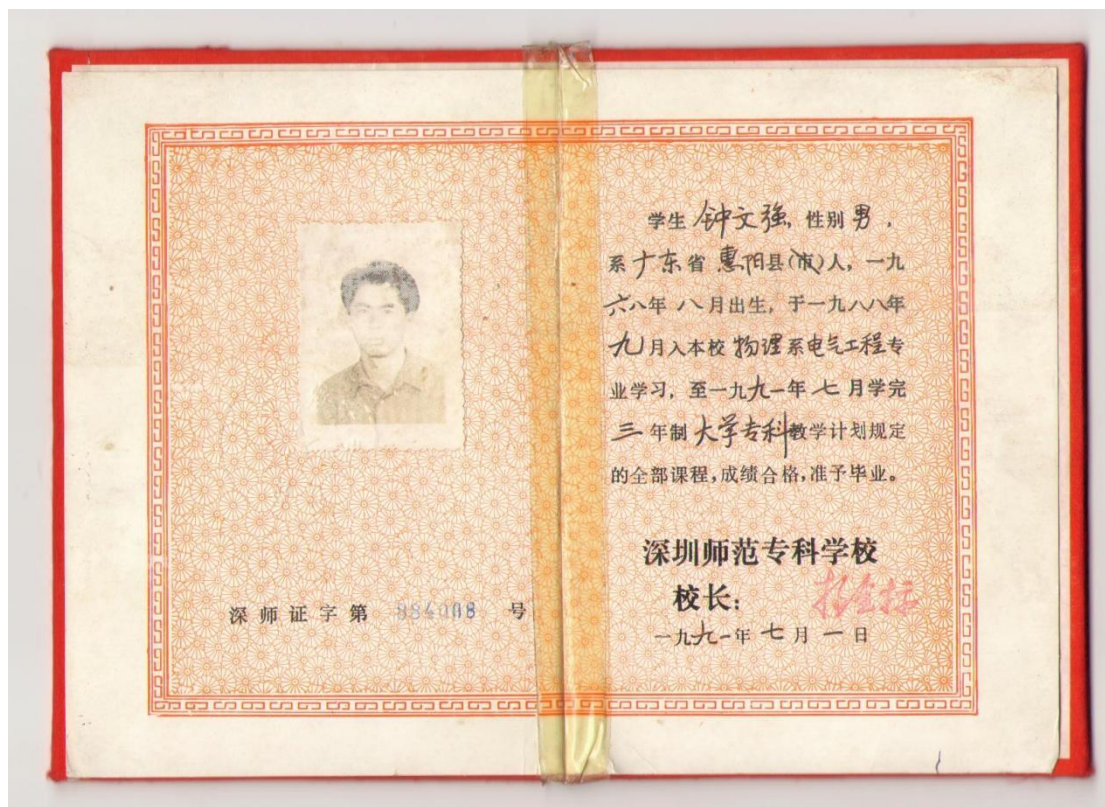 深师证字第 884008 号
学生 钟文强, 性别 男,
系广东省 惠阳县(市)人, 一九
六八年 八月出生, 于一九八八年
九月入本校 物理系电气工程专
业学习, 至一九九一年 七月学完
三年制 大学专科教学计划规定
的全部课程,成绩合格,准予毕业。
深圳师范专科学校
校长:
一九九一年 七月 一日